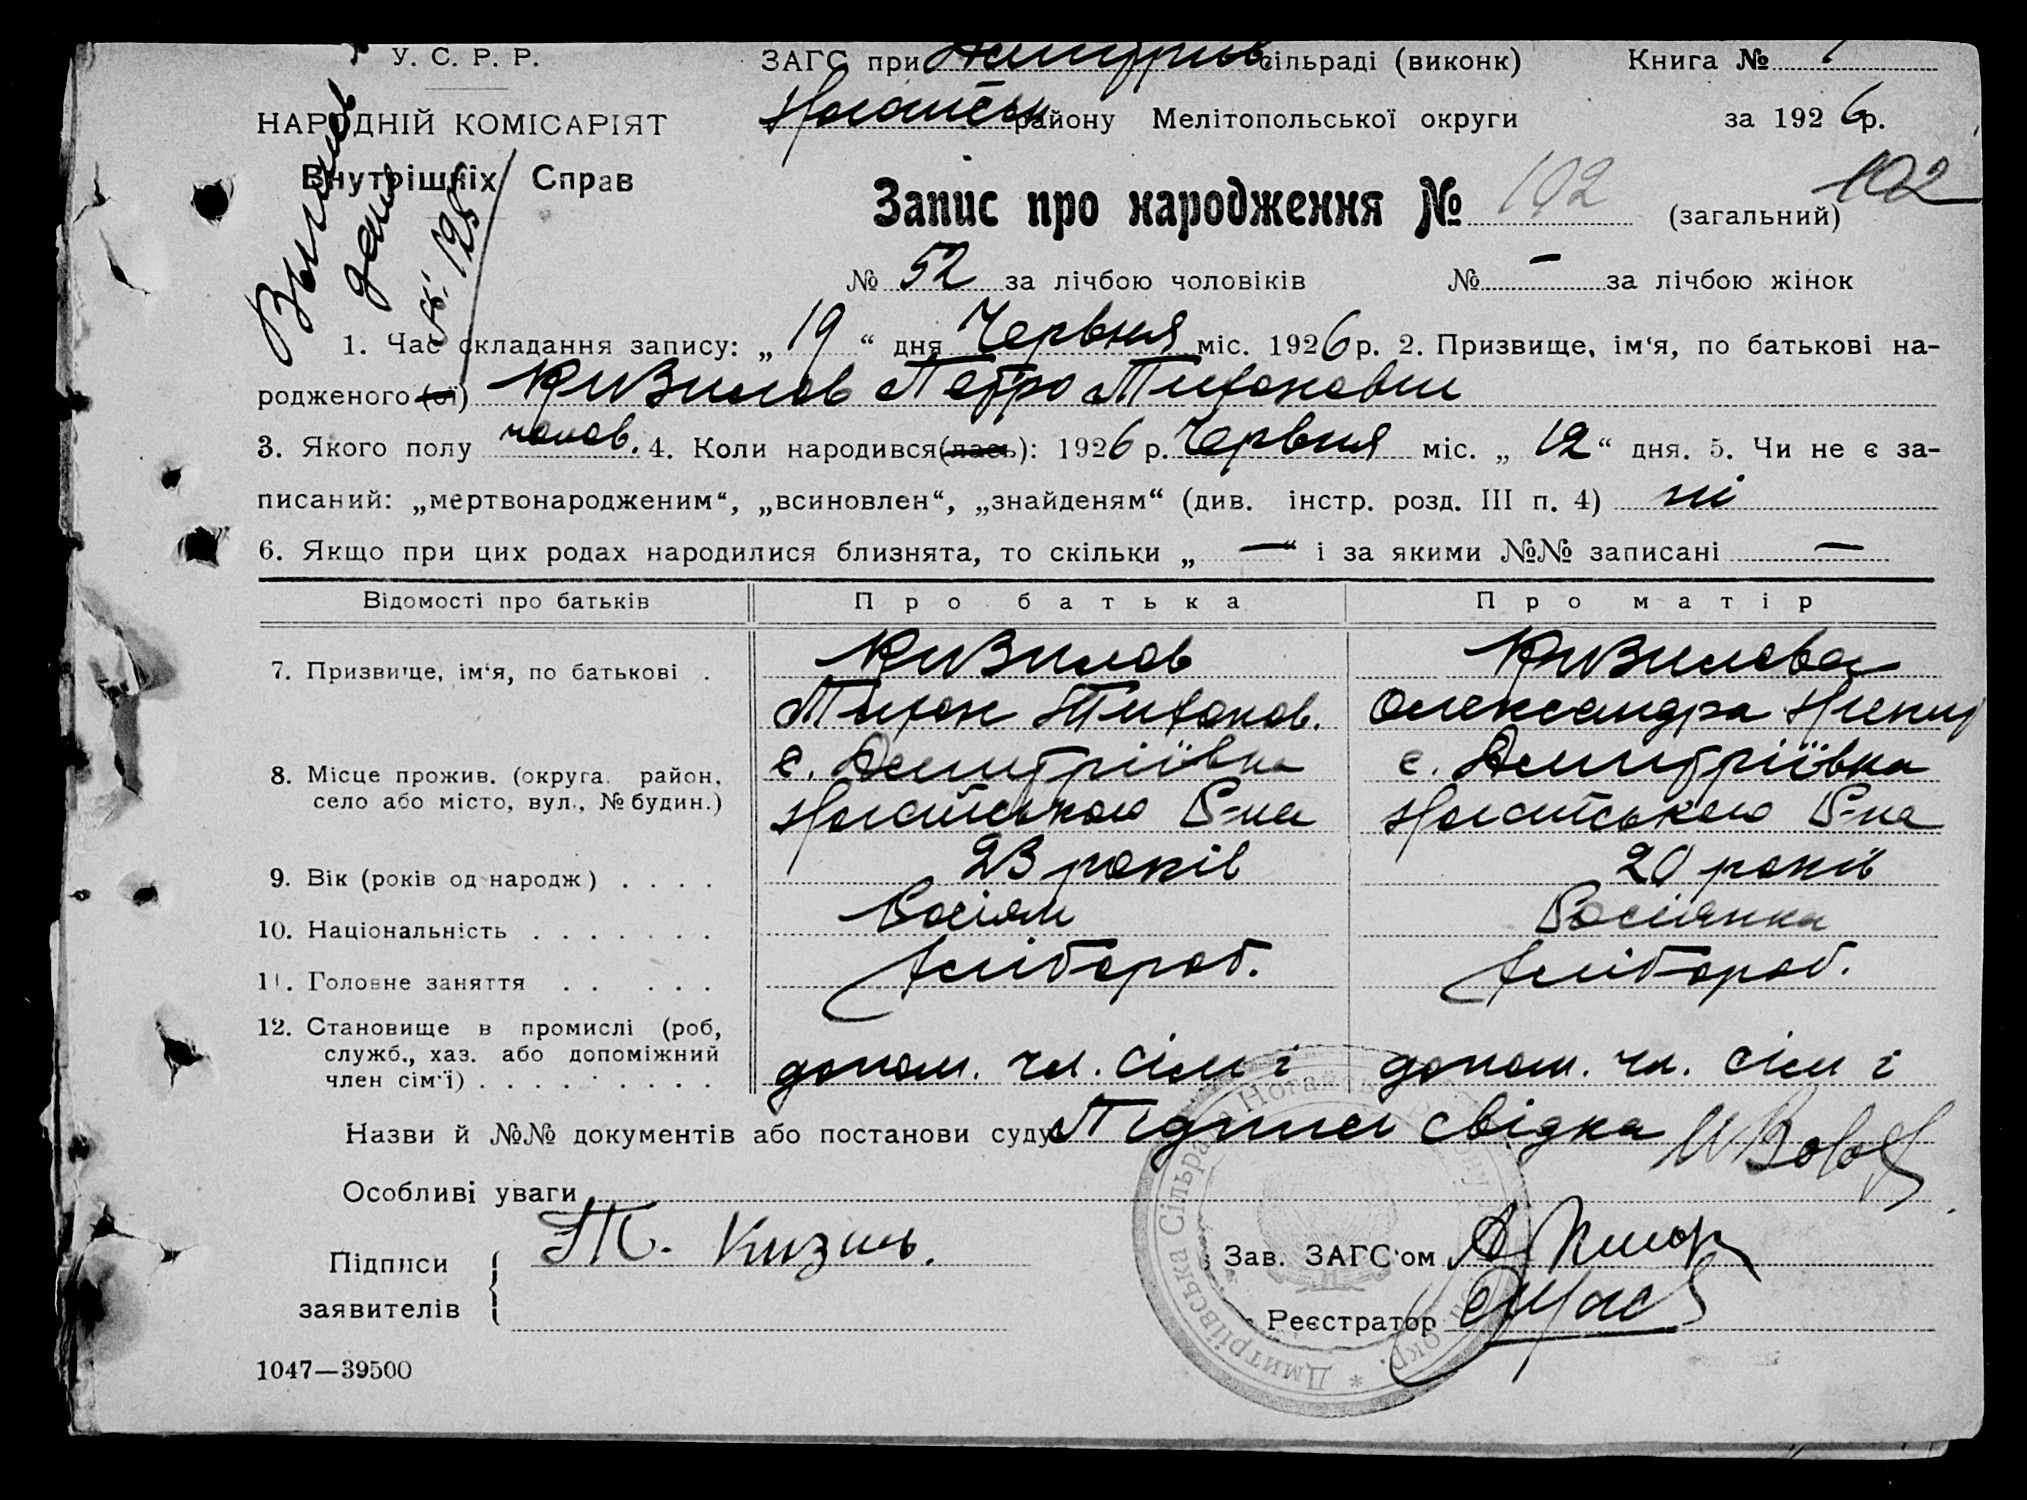 У. С. Р. Р.
НАРОДНІЙ КОМІСАРІЯТ
Внутрішніх Справ
ЗАГС при Дмитрів сільраді (виконк) Книга №
Ногайськ району Мелітопольської округи за 1926 р.
Запис про народження № 102 (загальний) 102
№ 52 за лічбою чоловіків № — за лічбою жінок
1. Час складання запису: „19“ дня Червня міс. 1926 р. 2. Призвище, ім‘я, по батькові на-
родженого (ої) Кизилов Петро Тихонович
3. Якого полу чолов. 4. Коли народився(лась): 1926 р. Червня міс. „12“ дня. 5. Чи не є за-
писаний: „мертвонародженим“, „всиновлен“, „знайденям“ (див. інстр. розд. III п. 4) ні
6. Якщо при цих родах народилися близнята, то скільки „—“ і за якими №№ записані —
Відомості про батьків Про батька Про матір
7. Призвище, ім‘я, по батькові . Кизилов Кизилова
Тихон Тихонов. Олександра
8. Місце прожив. (округа, район, с. Дмитріївка с. Дмитріївка
село або місто, вул., № будин.) Ногайського Р-на Ногайського Р-на
9. Вік (років од народж) . . . . 23 років 20 років
10. Національність . . . . . . . Росіян Росіянка
11. Головне заняття . . . . . Хлібороб. Хлібороб.
12. Становище в промислі (роб,
служб., хаз. або допоміжний
член сім‘ї) . . . . . . . . . допом. чл. сім ї допом. чл. сім ї
Назви й №№ документів або постанови суду Підписи свідка
Особливі уваги
Підписи
заявителів
Т. Кизил.
Зав. ЗАГС‘ом
Реєстратор
Дмитріївська Сільрада Ногайськ окр. *
1047—39500